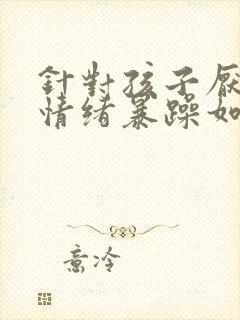 針對孩子厭
情绪暴躁如
意冷